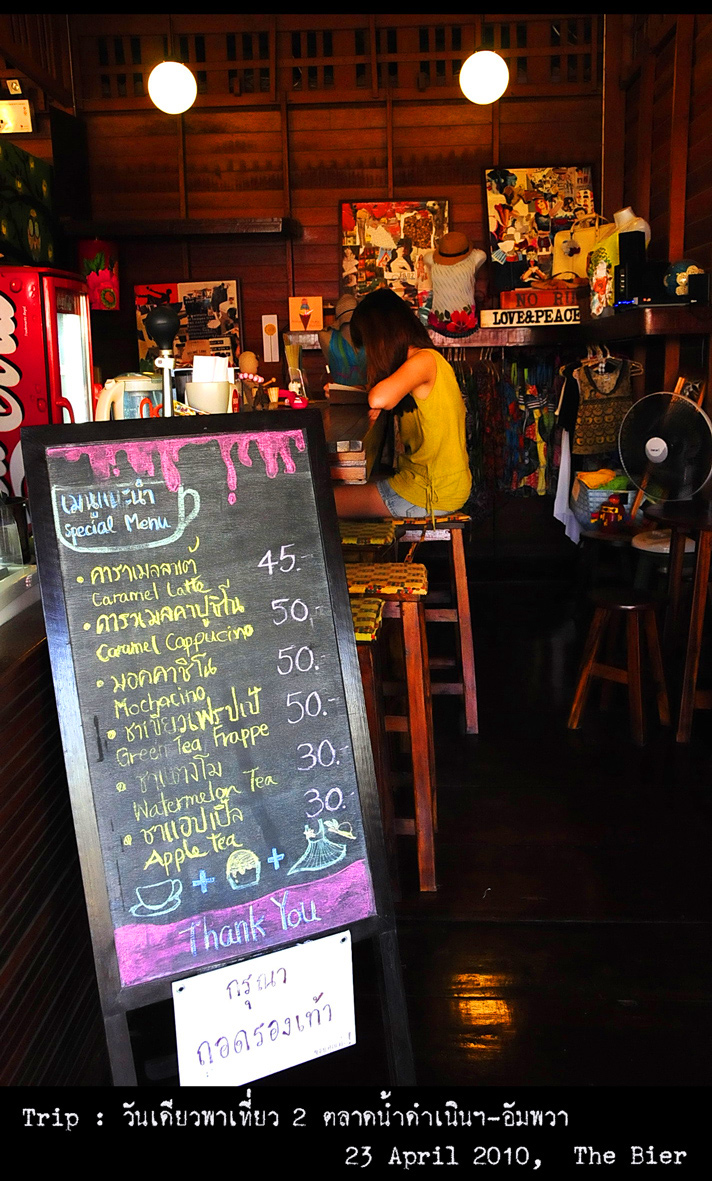 NO RI
LOVE&PEACE
เมนูแนะนำ
Special Menu
• คาราเมลลาเต้ 45.-
Caramel Latte
• คาราเมลคาปูชิโน 50.-
Caramel Cappucino
• มอคคาชิโน 50.-
Mochacino
• ชาเขียวเฟรปเป้ 50.-
Green Tea Frappe
• ชาแตงโม 30.-
Watermelon Tea
• ชาแอปเปิ้ล 30.-
Apple Tea
+ +
Thank You
กรุณา
ถอดรองเท้า
Trip : วันเดียวพาเที่ยว 2 ตลาดน้ำดำเนินฯ-อัมพวา
23 April 2010, The Bier